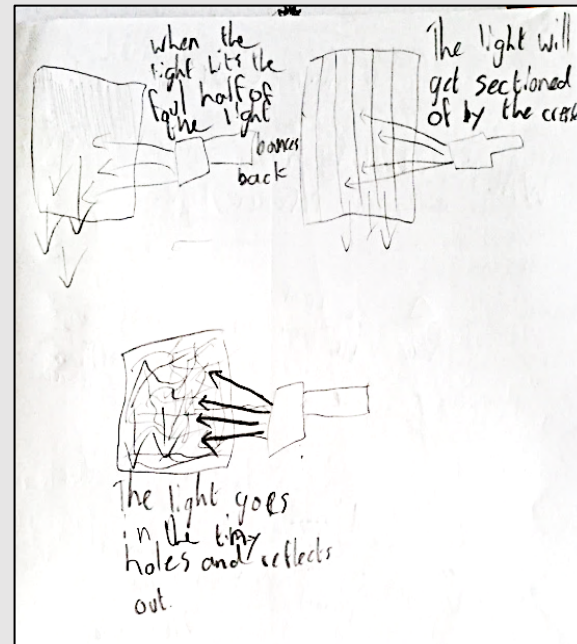 when the
light hits the
foul half of
the light
bounces
back
The light will
get sectioned
of by the creese
The light goes
in the tiny
holes and reflects
out.